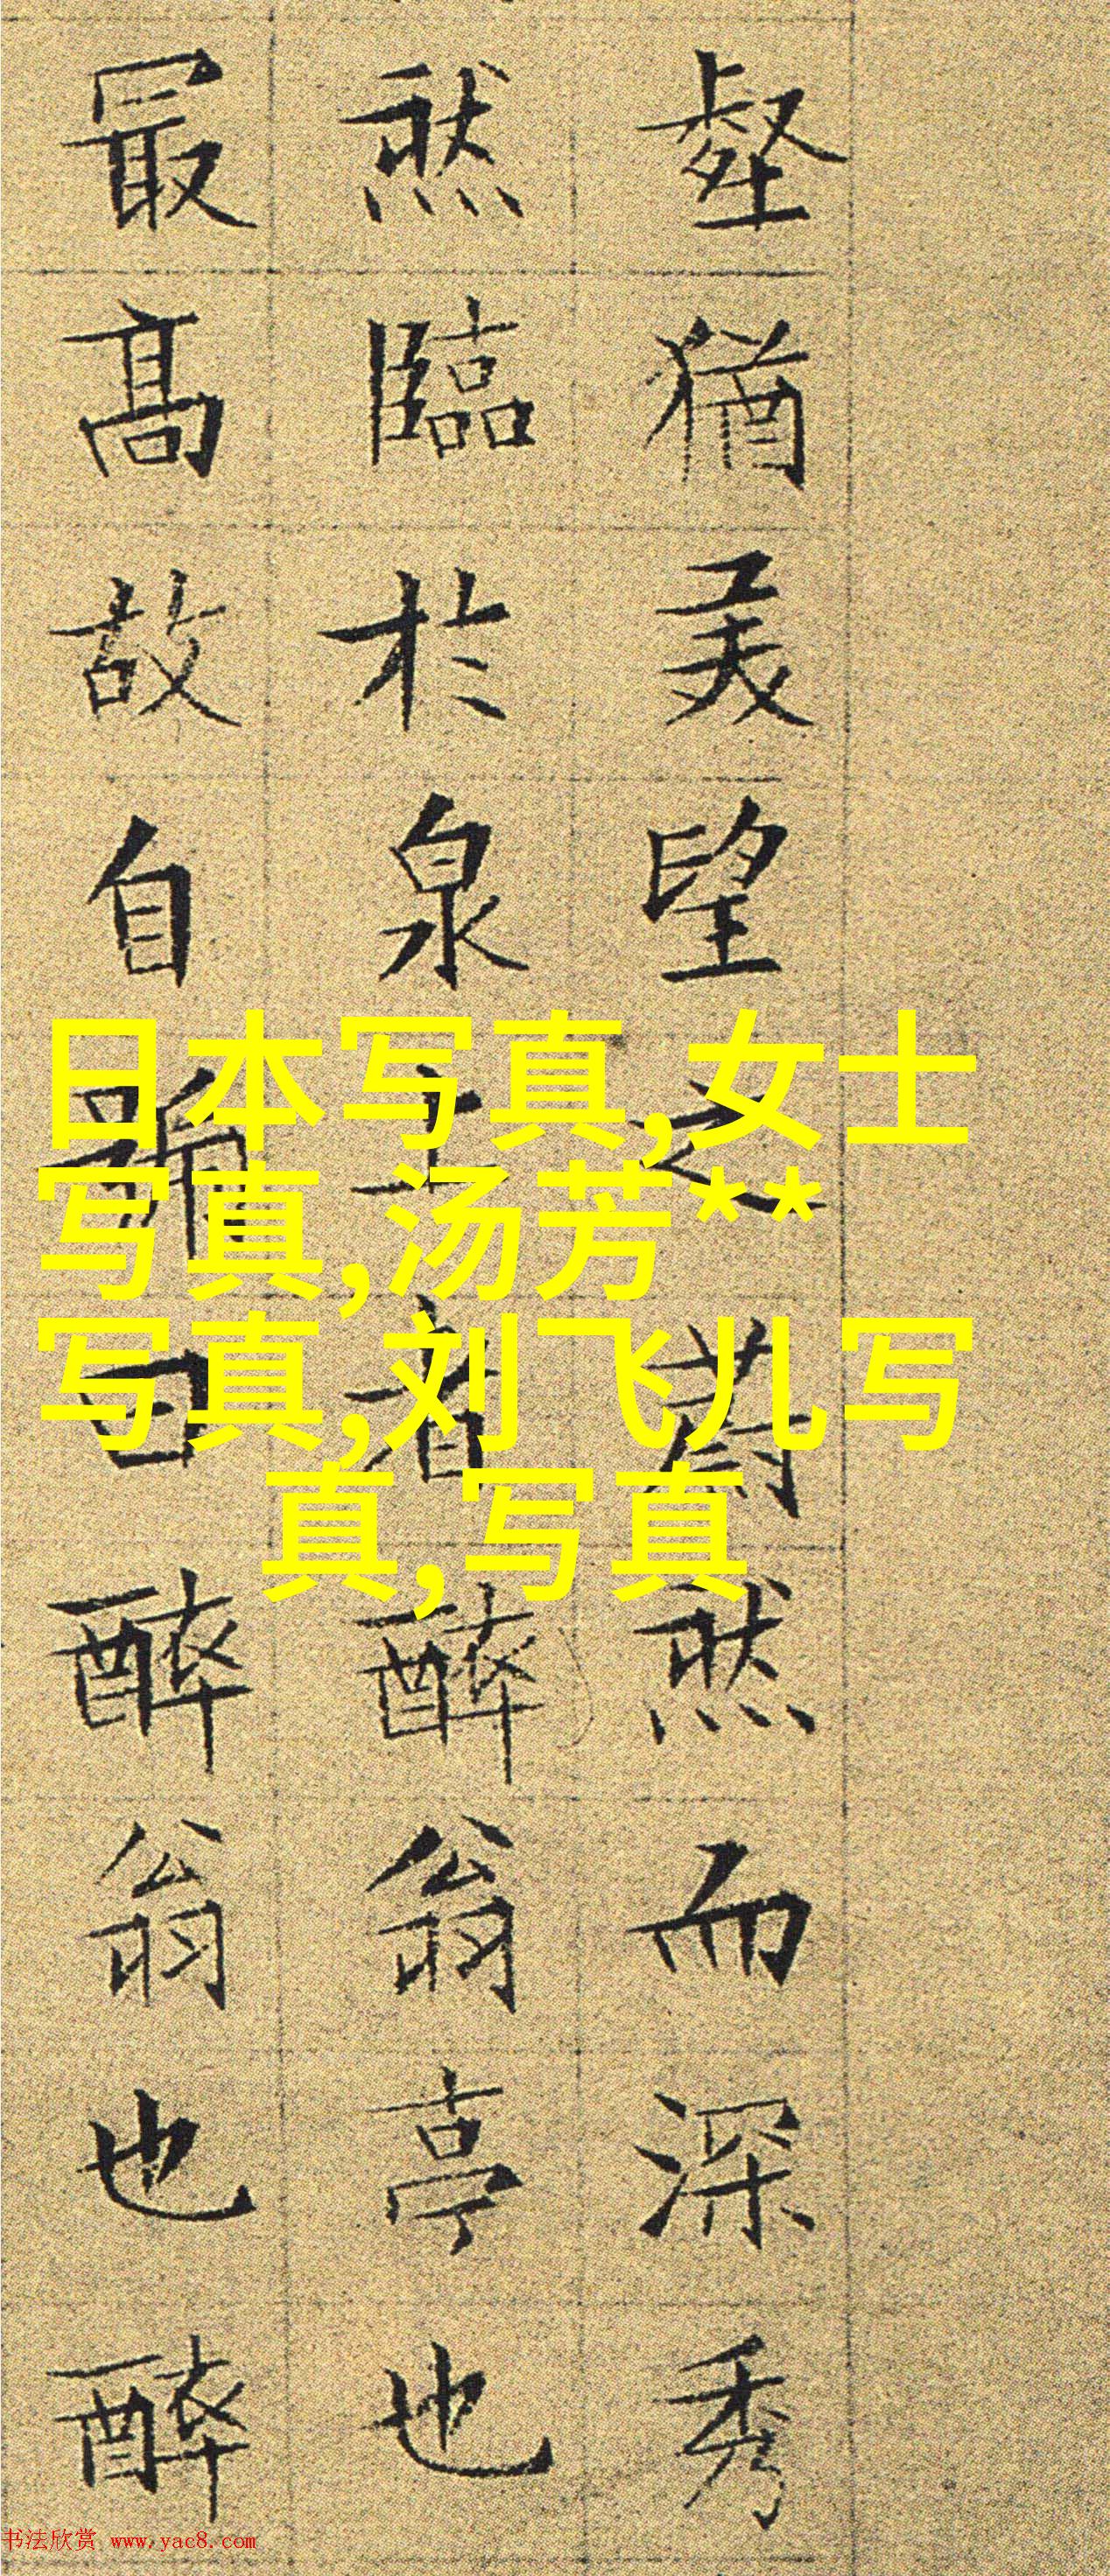 壑猶美望之蔚然而深秀
然臨於泉上者醉翁亭也
最高故自號曰醉翁也醉
日本写真,女士
写真,汤芳**
写真,刘飞儿写
真,写真
书法欣赏 www.yac8.com